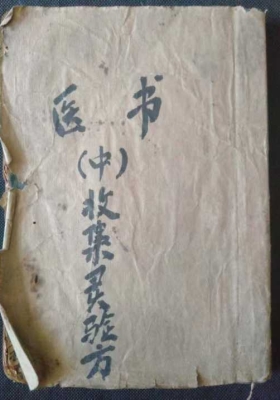 医书
(中)收集灵验方